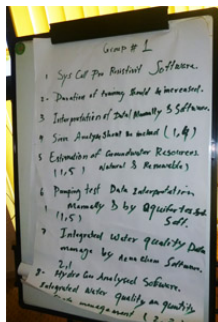 Group # 1
1 Sys Cal Pro Resistivit Software.
2. Duration of training should be increased.
3 Interpretation of Data Manually & Software.
4 Sieve Analysis should be included (1,4)
5 Estimation of Groundwater Resources
(1,5) Natural & Renewable)
6 Pumping test Data Interpretation
(1,5) Manually & by Aquifer test Soft.
7 Integrated Water Quality Data
manage by Software.
8. Hydro Geo Analysed Software.
Integrated Water quality an quantity
management (2,